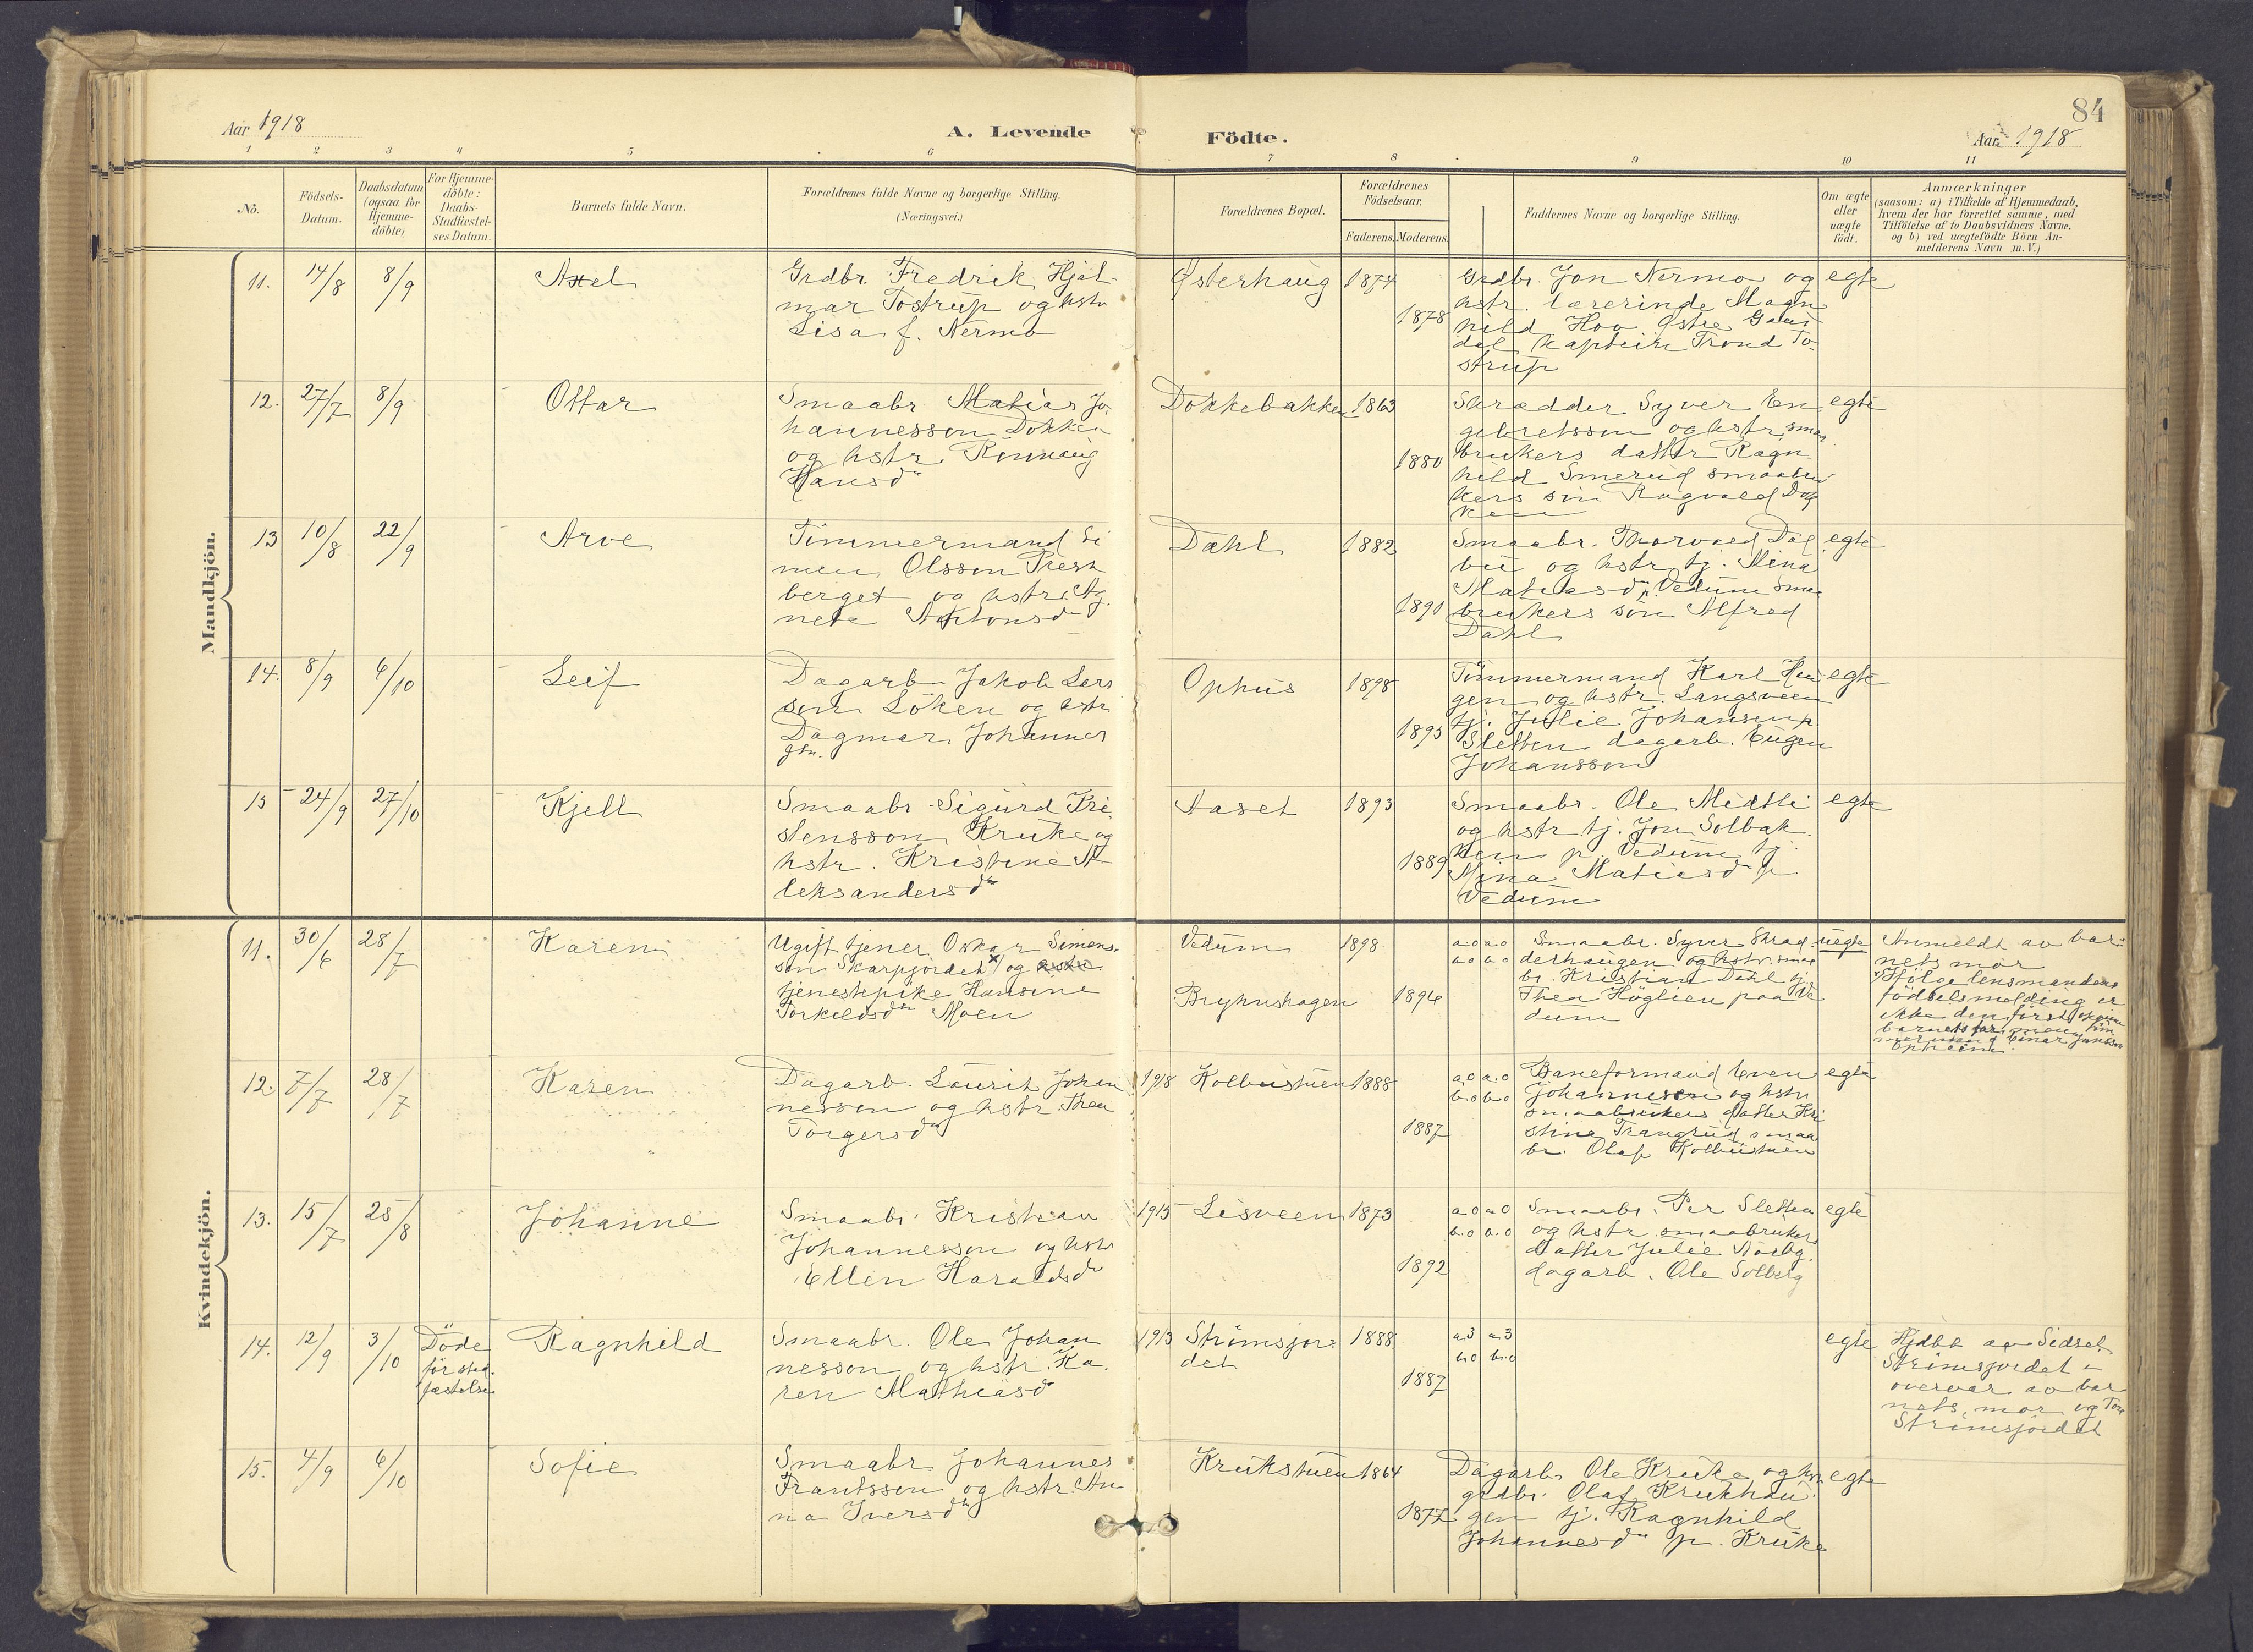 84
Aar 1918
A. Levende
Födte.
Aar 1918
1 2 3 4 5 6 7 8 9 10 11
No.
Födsels-
Datum.
Daabsdatum
(ogsaa for
Hjemme-
döbte)
For Hjemme-
döbte:
Daabs-
Stadfæstel-
ses Datum.
Barnets fulde Navn.
Forældrenes fulde Navne og borgerlige Stilling.
(Næringsvei.)
Forældrenes Bopæl.
Forældrenes
Födselsaar.
Faderens. Moderens.
Faddernes Navne og borgerlige Stilling.
Om ægte
eller
uægte
födt.
Anmærkninger
(saasom: a) i Tilfælde af Hjemmedaab,
hvem der har forrettet samme, med
Tilföielse af to Daabsvidners Navne,
og b) ved uægtefödte Börn An-
melderens Navn m. V.)
Mandkjön.
11. 14/8 8/9 Axel
Grdbr. Fredrik Hjal-
mar Tostrup og hstr
Lisa f. Nermo
Østerhaug 1874
1878
Grdbr. Jon Nermo og
hstr. lærerinde Magn-
hild Hov Østre Gaus
dal kaptein Trond To-
strup
egte
12. 27/7 8/9 Ottar
Smaabr Matias Jo-
hannesson Dokken
og hstr. Rönnaug
Hansdr
Dokkebakken 1863
1880
Skrædder Syver En-
gebretsson og hstr, smaa
brukers datter Ragn
hild Smerud smaabru
kers sön Ragvald Dok
ken
egte
13 10/8 22/9 Arve
Tömmermand Si
men Olsson Prest
berget og hstr. Ag-
nete Antonsdr
Dahl 1882
1891
Smaabr. Thorvald Dal
bu og hstr. tj. Mina
Matiasdr p. Vedum Sma
brukers sön Alfred
Dahl
egte
14. 8/9 6/10 Leif
Dagarb. Jakob Lars
son Löken og hstr
Dagmar Johannes
dtr.
Ophus 1898
1895
Tömmermand Karl Hau
gen og hstr. Langsveen
tj. Julie Johansen p.
Sletten dagarb. Eugen
Johansson
egte
15 24/9 27/10 Kjell
Smaabr. Sigurd Kri
stensson Kruke og
hstr. Kristine A
leksandersdr
Aaset 1893
1889
Smaabr. Ole Midtli
og hstr tj. Jon Solbak
ken p. Vedum tj
Mina Matiasdr p
Vedum
egte
Kvindekjön.
11. 30/6 28/7 Karen
Ugift tjener Oskar Simens-
son Skarpjordet x) og hstr
tjenestepike Hansine
Torkildsdr Moen
Vedum 1898
Bryhnshagen 1896
a.0 a.0
b.0 b.0
Smaabr. Syver Skræd
derhaugen og hstr. smaa
br. Kristian Dahl tj.
Thea Höglien paa Ve
dum
uegte
Anmeldt av bar-
nets mor
x) Ifölge lensmandens
födselsmelding er
ikke den först opgivne
barnets far, men
Einar Jansson
Opheim.
12. 7/7 28/7 Karen
Dagarb. Laurits Johan
nesson og hstr. Thea
Torgersdr
1918 Kolbustuen 1888
1887
a.0 a.0
b.0 b.0
Baneformand Even
Johannesen og hstr
smaabrukers datter Kri
stine Trangrud smaa
br. Olaf Kolbustuen
egte
13. 15/7 25/8 Johanne
Smaabr. Kristian
Johannesson og hstr
Ellen Haraldsdr
1915 Lisveen 1873
1892
a.0 a.0
b.0 b.0
Smaabr. Per Sletten
og hstr smaabrukers
datter Julie
dagarb. Ole Solberg
egte
14. 12/9 3/10 Döde
för stad-
fæstelse
Ragnhild
Smaabr. Ole Johan
nesson og hstr. Ka-
ren Mathiasdr
1913 Strömsjor-
det
1888
1887
a.3 a.3
b.0 b.0
egte
Hjdbt av Sidsel
Strömsjordet i
overvær av bar
nets mor og Tore
Strömsjordet
15. 4/9 6/10 Sofie
Smaabr. Johannes
Frantsson og hstr. An
na Iversdr
Krukstuen 1864
1877
Dagarb. Ole Kruke og hstr.
grdbr. Olaf Krukhau
gen tj. Ragnhild
Johannesdr p. Kruke
egte